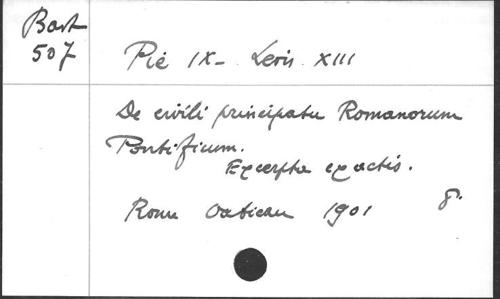 Bast
507
Pie IX - Leris XIII
De civili principatu Romanorum
Pontificum.
Excerpta ex actis.
Rome Vatican 1901 8.